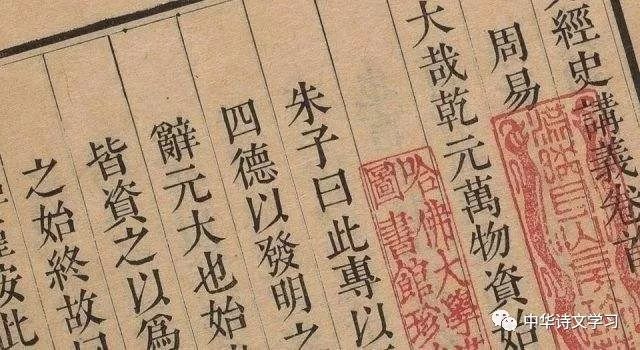 經史講義卷首
周易
大哉乾元萬物資始
朱子曰此專以
四德以發明之
辭元大也始
皆資之以爲
之始終故
按此
哈佛大學
圖書館珍
中华诗文学习